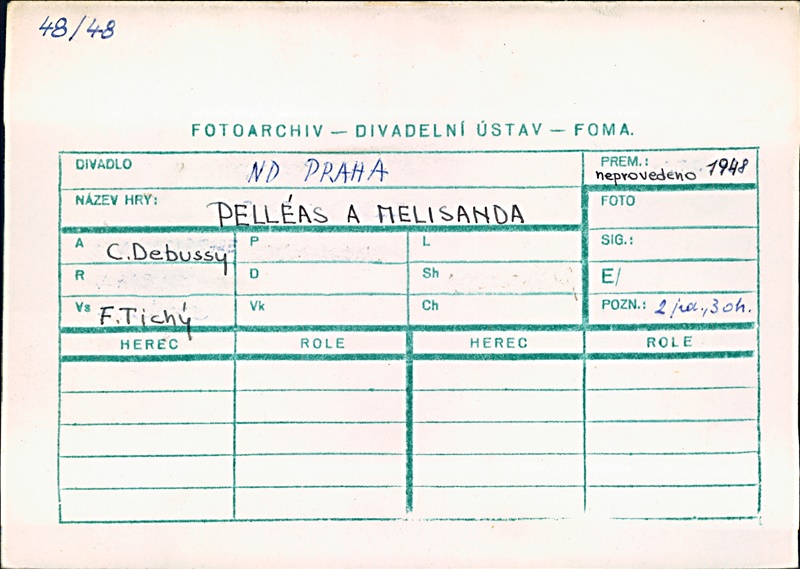 48/48
FOTOARCHIV — DIVADELNÍ ÚSTAV — FOMA.
DIVADLO ND PRAHA PREM.: neprovedeno 1948
NÁZEV HRY: PELLÉAS A MELISANDA FOTO
A C. Debussy P L SIG.:
R D Sh E/
Vs F. Tichý Vk Ch POZN.: 2 ja., 3 oh.
HEREC ROLE HEREC ROLE